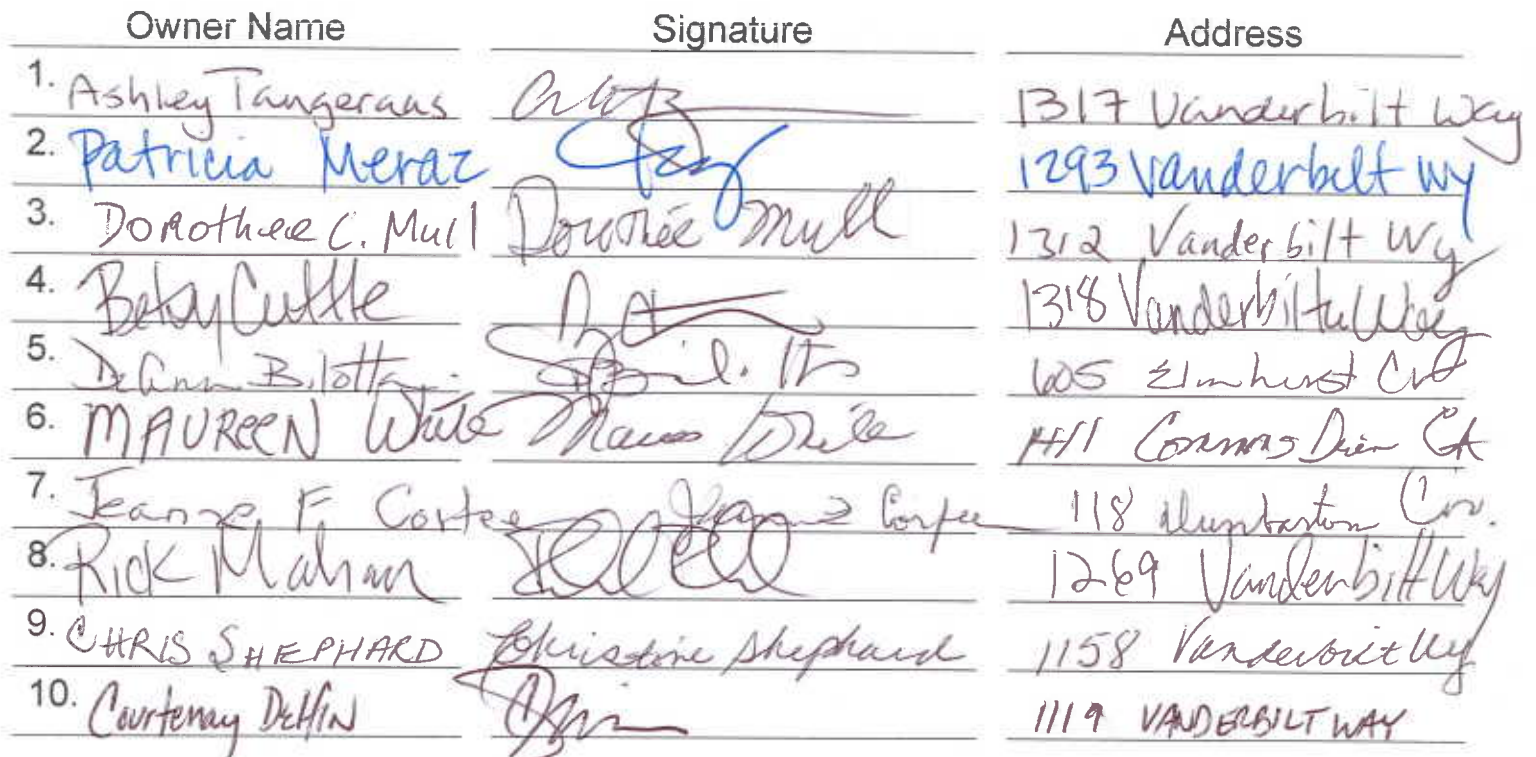 Owner Name Signature Address
1. Ashley Tangeraas 1317 Vanderbilt Way
2. Patricia Meraz 1293 Vanderbilt Wy
3. Dorothee C. Mull Dorothée Mull 1312 Vanderbilt Wy
4. Betsy Cuttle 1318 Vanderbilt Way
5. DeAnn Bilotta 605 Elmhurst
6. MAUREEN White White 1411 Commons
7. Jeanne F. 118 Dunbarton Cir.
8. Rick Mahan 1269 Vanderbilt Way
9. CHRIS SHEPHARD Christine Shephard 1158 Vanderbilt Wy
10. Courtenay Delfin 1119 VANDERBILT WAY